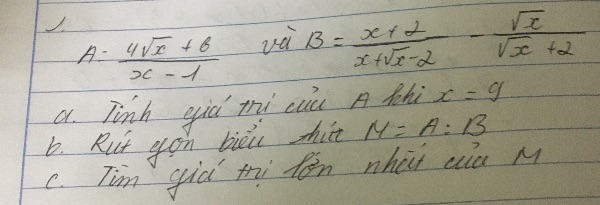 1.
A = \frac{4\sqrt{x} + 6}{x - 1} và B = \frac{x + 2}{x + \sqrt{x} - 2} - \frac{\sqrt{x}}{\sqrt{x} + 2}
a. Tính giá trị của A khi x = 9
b. Rút gọn biểu thức M = A : B
c. Tìm giá trị lớn nhất của M